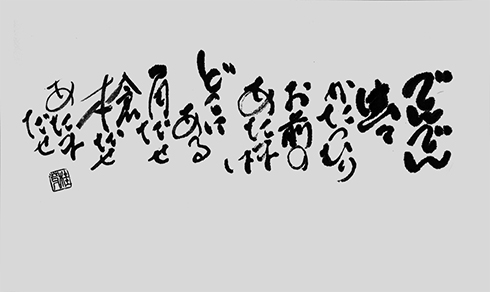 でんでん
虫々
かたつむり
お前の
あたまは
どこに
ある
角だせ
槍だせ
あたま
だせ